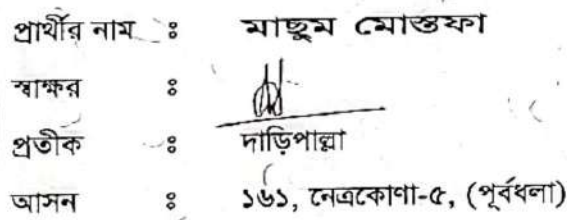 প্রার্থীর নাম ঃ মাছুম মোস্তফা
স্বাক্ষর ঃ
প্রতীক ঃ দাড়িপাল্লা
আসন ঃ ১৬১, নেত্রকোণা-৫, (পূর্বধলা)